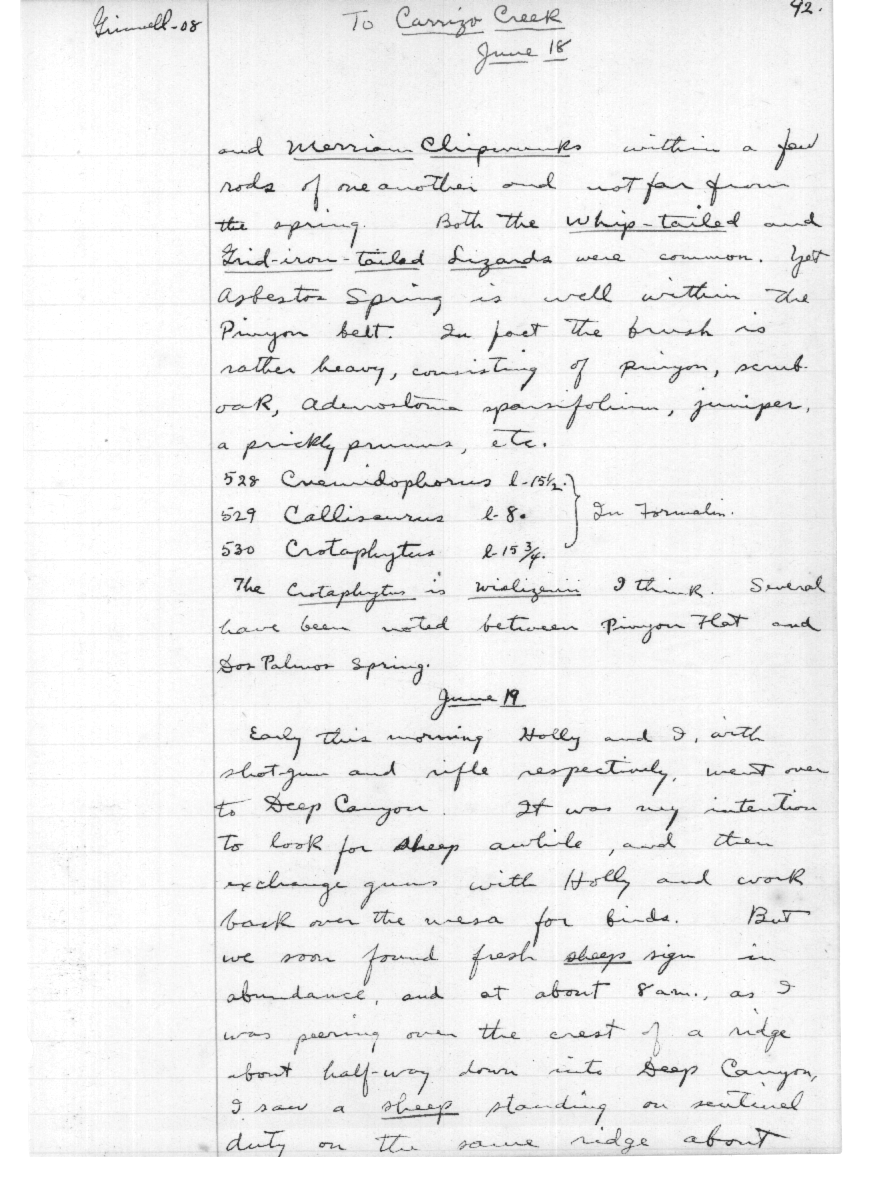 Grinnell-08
To Carrizo Creek
42.
June 18
and Merriam Chipmunks within a few
rods of one another and not far from
the spring. Both the Whip-tailed and
Grid-iron-tailed Lizards were common. Yet
Asbestos Spring is well within the
Pinyon belt. In fact the brush is
rather heavy, consisting of pinyon, scrub-
oak, Adenostoma sparsifolium, juniper,
a prickly prunus, etc.
528 Cnemidophorus l-15½.
529 Callisaurus l-8.
In Formalin.
530 Crotaphytus l-15¾.
The Crotaphytus is wislizenii I think. Several
have been noted between Pinyon Flat and
Dos Palmos Spring.
June 19
Early this morning Holly and I, with
shot-gun and rifle respectively, went over
to Deep Canyon. It was my intention
to look for sheep awhile, and then
exchange guns with Holly and work
back over the mesa for birds. But
we soon found fresh sheep sign in
abundance, and at about 8 am., as I
was peering over the crest of a ridge
about half-way down into Deep Canyon,
I saw a sheep standing on sentinel
duty on the same ridge about